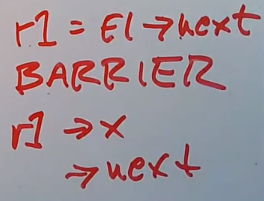 r1 = El → next
BARRIER
r1 → x
→ next